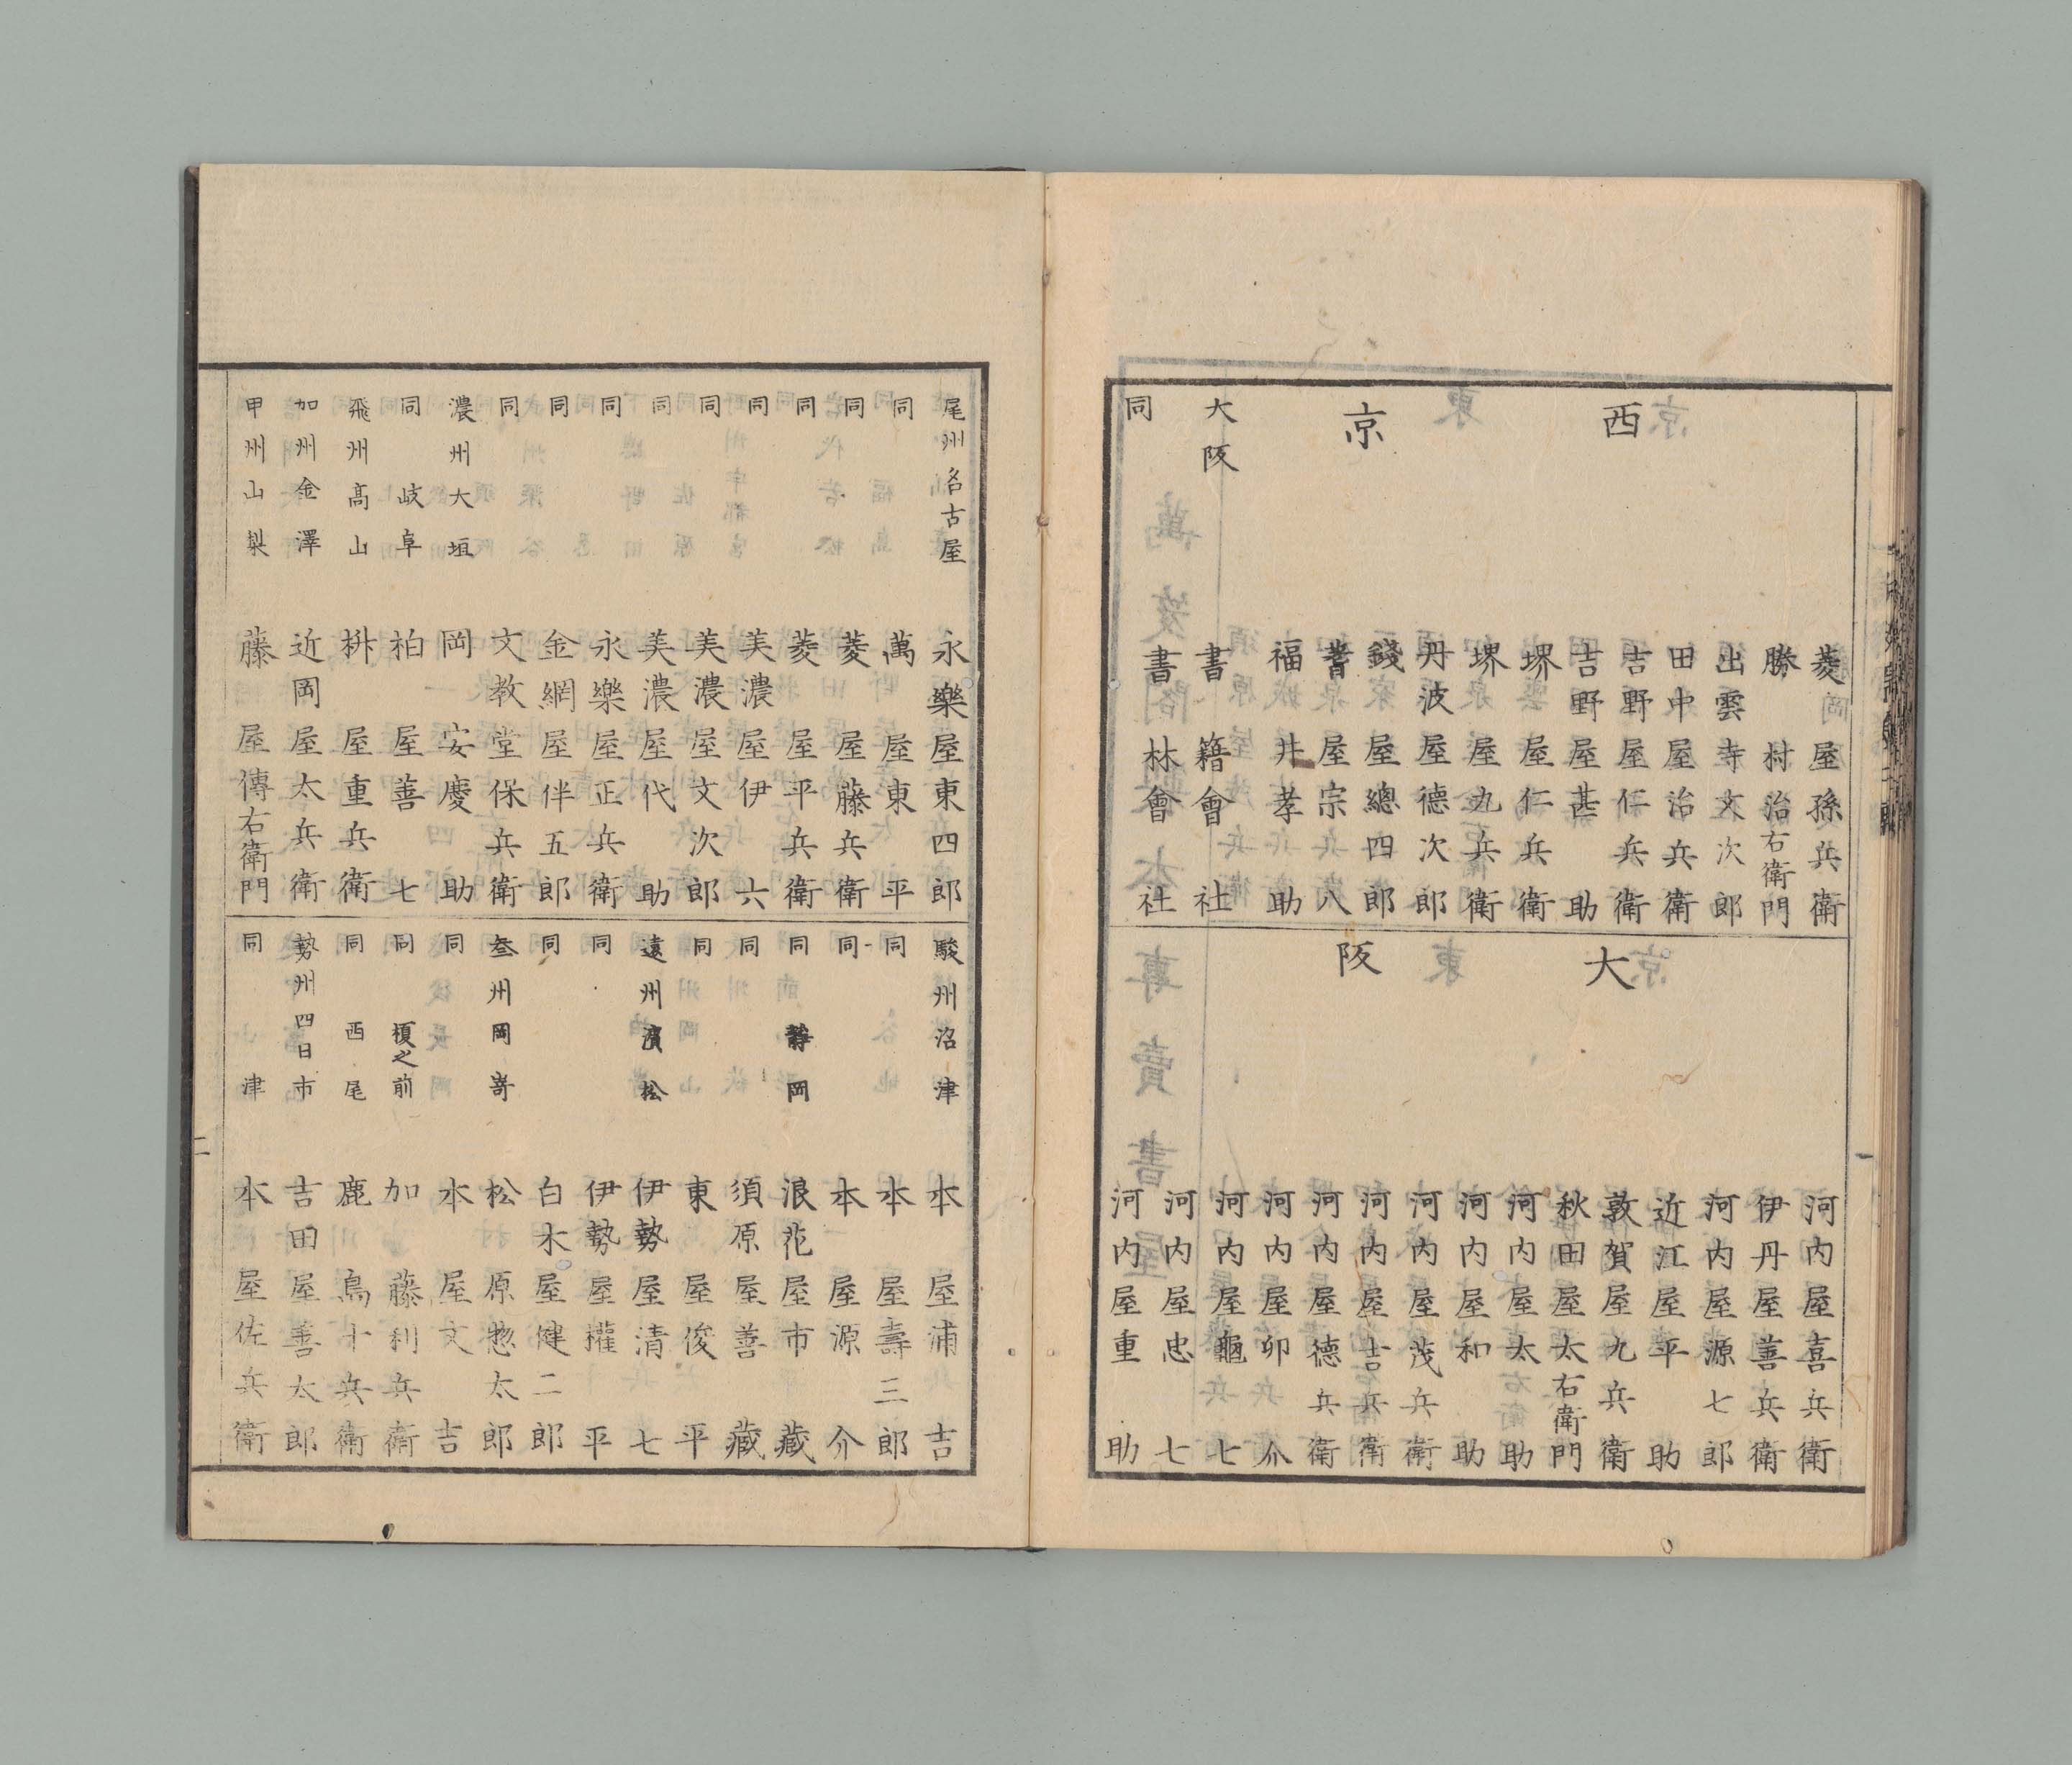 西京
菱屋孫兵衛
勝村治右衛門
出雲寺文次郎
田中屋治兵衛
吉野屋仁兵衛
吉野屋甚助
堺屋仁兵衛
堺屋九兵衛
丹波屋德次郎
錢屋總四郎
蓍屋宗八
福井孝助
大阪 書籍會社
同 書林會社
大阪
河内屋喜兵衛
伊丹屋善兵衛
河内屋源七郎
近江屋平助
敦賀屋九兵衛
秋田屋太右衛門
河内屋太助
河内屋和助
河内屋茂兵衛
河内屋吉兵衛
河内屋德兵衛
河内屋卯介
河内屋龜七
河内屋忠七
河内屋重助
一
尾州名古屋 永樂屋東四郎
同 萬屋東平
同 菱屋藤兵衛
同 菱屋平兵衛
同 美濃屋伊六
同 美濃屋文次郎
同 美濃屋代助
同 永樂屋正兵衛
同 金網屋伴五郎
同 文教堂保兵衛
濃州大垣 岡安慶助
同岐阜 柏屋善七
飛州高山 枡屋重兵衛
加州金澤 近岡屋太兵衛
甲州山梨 藤屋傳右衛門
駿州沼津 本屋浦吉
同 本屋壽三郎
同 本屋源介
同靜岡 浪花屋市藏
同 須原屋善藏
同 東屋俊平
遠州濱松 伊勢屋清七
同 伊勢屋權平
同 白木屋健二郎
叁州岡嵜 松原惣太郎
同 本屋文吉
同榎之前 加藤利兵衛
同西尾 鹿島十兵衛
勢州四日市 吉田屋善太郎
同津 本屋佐兵衛
二